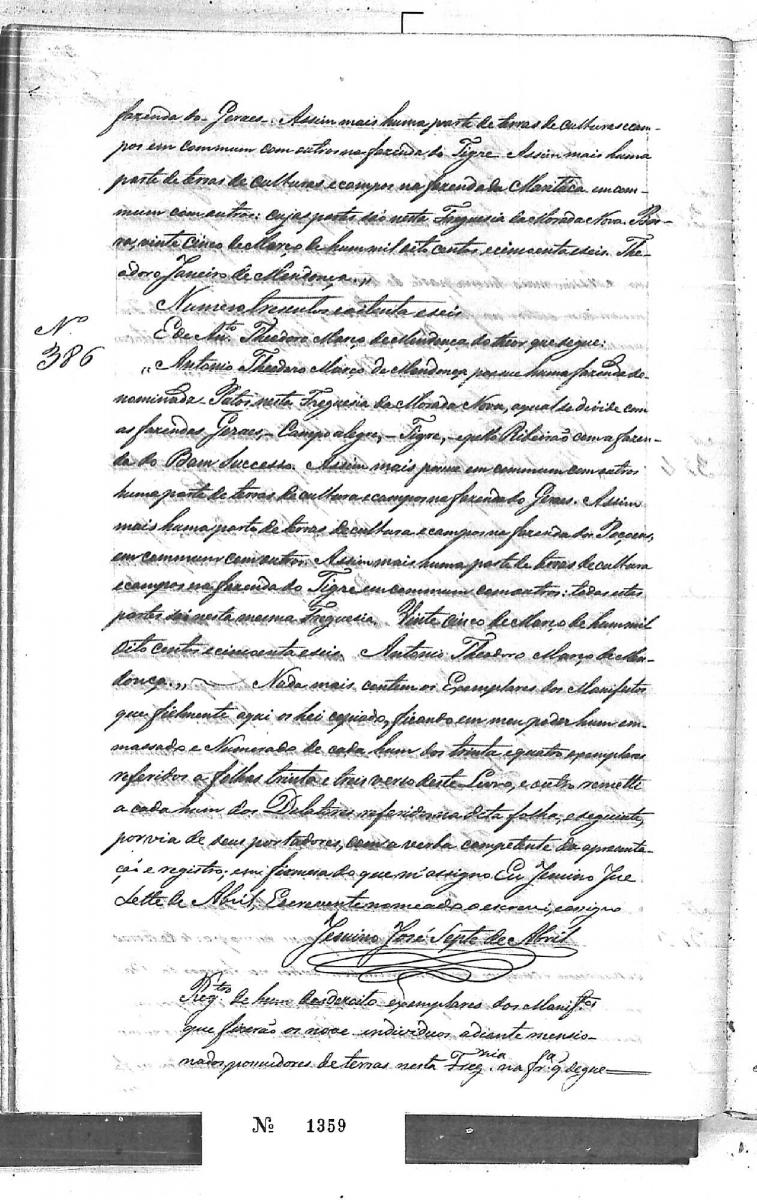 fazenda do Geraes. Assim mais huma parte de terras de culturas e cam-
pos em commum com outros na fazenda do Tigre Assim mais huma
parte de terras de culturas e campos na fazenda da Maritaca em com-
mum com outros: cujas partes são nesta Freguesia da Morada Nova.
vinte cinco de Março de hum mil oito centos e cincoenta e seis. The-
odoro Janeiro de Mendonça.,,
Numero tresentos e oitenta e seis
Nº
386
E de Anto. Theodoro Março de Mendonça do theor que segue:
,,Antonio Theodoro Março de Mendonça possue huma fazenda de-
nominada Patos nesta Freguesia da Morada Nova, a qual se divide com
as fazendas Geraes, - Campo alegre, - Tigre, - e pello Ribeirão com a fazen-
da do Bom Successo. Assim mais possue em commum com outros
huma parte de terras de cultura e campos na fazenda do Geraes. Assim
mais huma parte de terras de cultura e campos na fazenda dos Poçoens,
em commum com outros. Assim mais huma parte de terras de cultura
e campos na fazenda do Tigre em commum com outros: todas estas
partes são nesta mesma Freguesia. Vinte cinco de Março de hum mil
oito centos e cincoenta e seis. Antonio Theodoro Março de Men-
donça.,, Nada mais contem os Exemplares dos Manifestos
que fielmente aqui os hei copiado, ficando em meu poder hum em-
massado e Numerado de cada hum dos trinta e quatro exemplares
referidos a folhas trinta e tres verso deste Livro, e outro remetti
a cada hum dos referidos na dita folha, e seguinte,
por via de seus portadores, com a verba competente da apresenta-
ção e registro; em firmesa do que m'assigno Eu Jesuino Jose
Sette de Abril, Escrevente nomeado o escrevi, e assigno
Jesuino José Septe de Abril
Regtro de hum dos dezoito exemplares dos Manifos
que fizerão os nove individuos adiante mensio-
nados possuidores de terras nesta Fregnia na fra q segue
Nº 1359